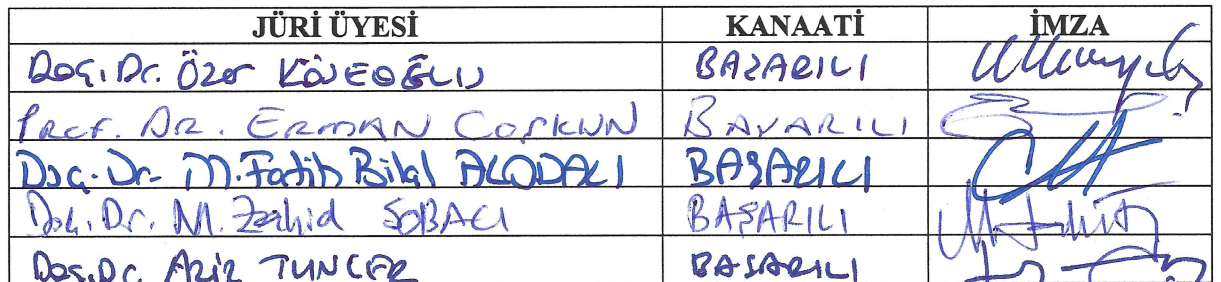 JÜRİ ÜYESİ KANAATİ İMZA
Doç. Dr. Özer KÖSEOĞLU BAŞARILI
Prof. Dr. ERMAN COŞKUN BAŞARILI
Doç. Dr. M. Fatih Bilal ALODALI BAŞARILI
Doç. Dr. M. Zahid SOBACI BAŞARILI
Doç. Dr. Aziz TUNCER BAŞARILI